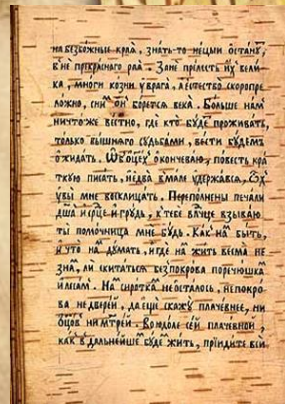 на безбожные края, знать-то нецыи останꙋт,
вне прікраснаго рая. Зане прілесть их вели
ка, многи козни ꙋврага, а естество скоропре
ложно, сним он борется века. Больше нам
ничтоже вестно, где кто бꙋде проживать,
только вышняго сꙋдьбами, вести бꙋдемъ
ожидать. Ѡбоцех окончеваю, повесть кра
ткꙋю писать, иедва вмале ꙋдержався, Ѡх
ꙋвы мне восклицать. Переполнены печали
дша исрце. игрꙋдь, ктебе влчце взываю,
ты помочница мне бꙋдь. Как на быть,
и что на дꙋмать, игде на жить весма не
зна, ли скитаться безпокрова поречюшка
илесам. На сироткa неосталось, непокро
ва недверей, да еще скажꙋ плачевнее, ни
отцов ниматрей. Воюдоле сей плачевной,
как вдальнейше бꙋде жить, приидите вси